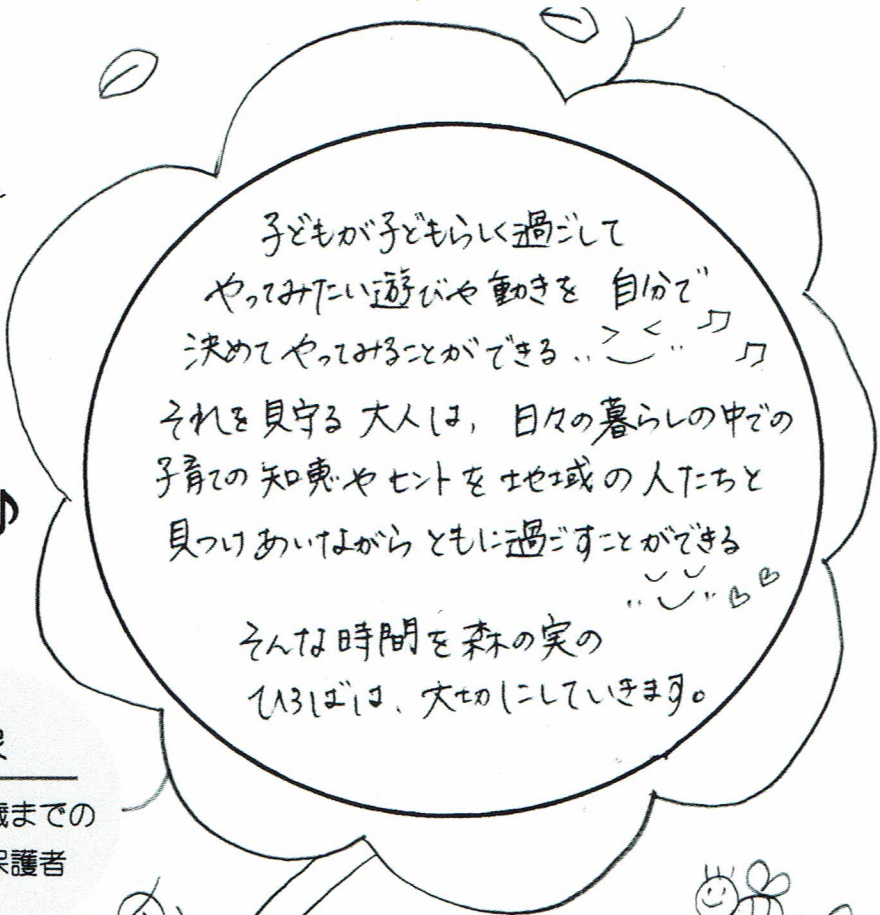 子どもが子どもらしく過ごして
やってみたい遊びや動きを 自分で
決めてやってみることができる
それを見守る大人は、日々の暮らしの中での
子育ての知恵やヒントを地域の人たちと
見つけあいながらともに過ごすことができる
そんな時間を森の実の
ひろばは、大切にしていきます。
歳までの
保護者